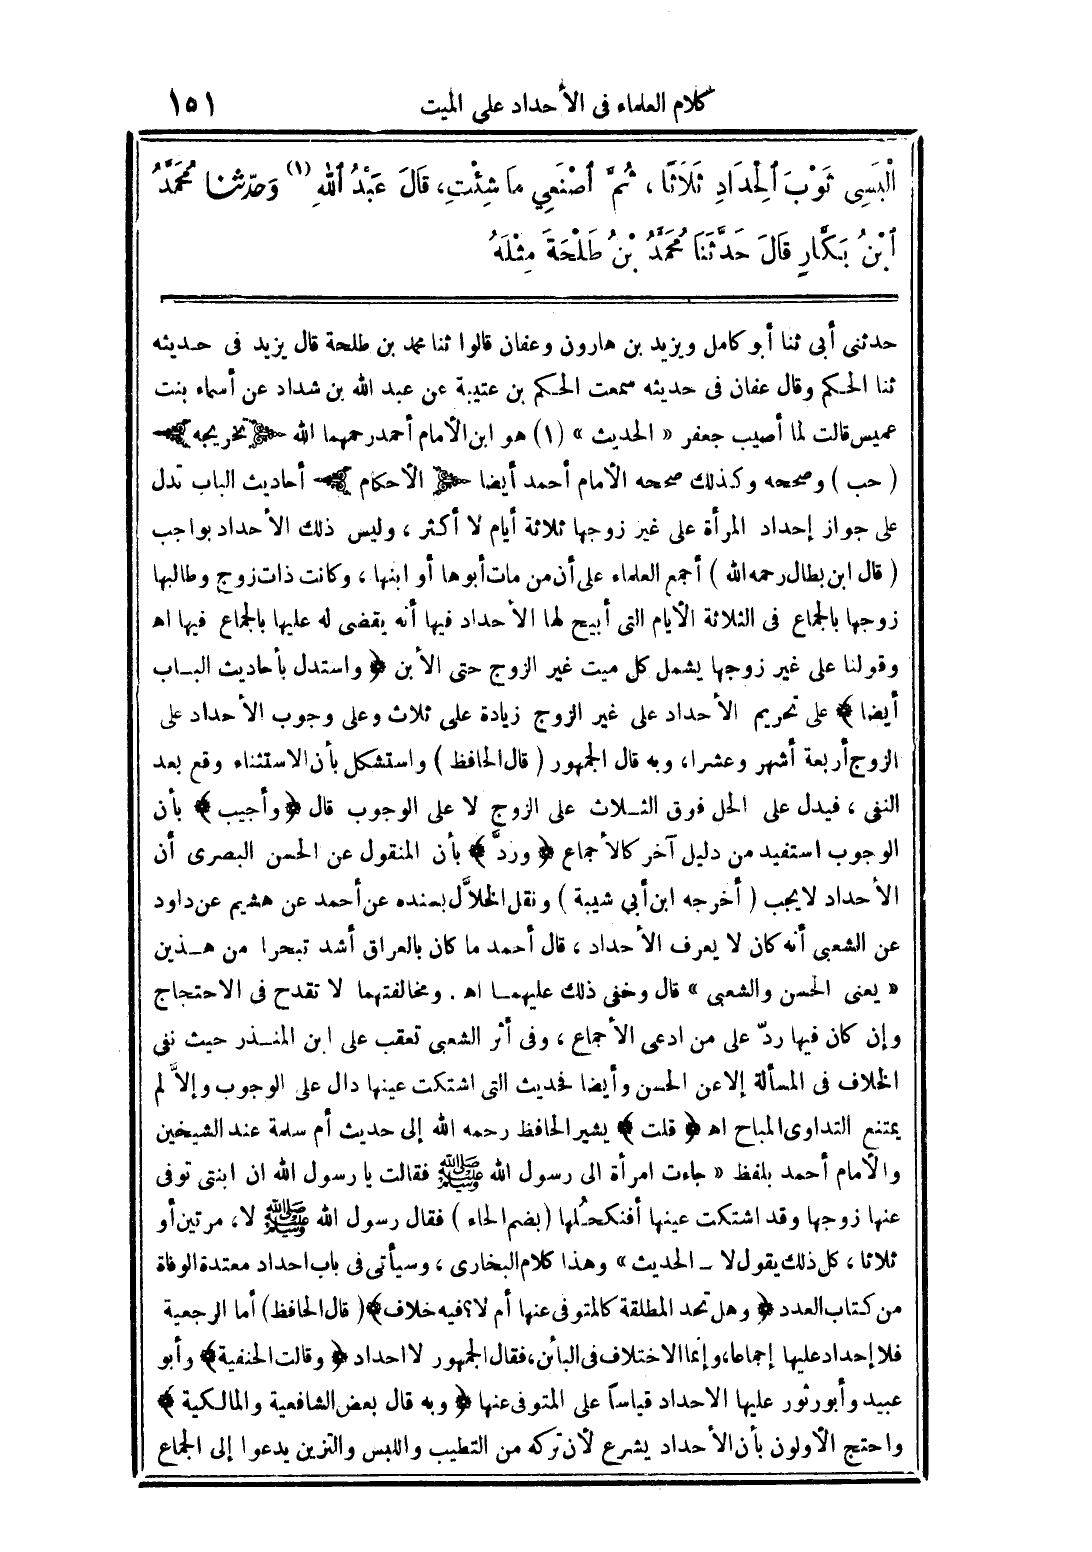 كلام العلماء فى الأحداد على الميت ١٥١
الْبَسِى ثَوْبَ ٱلْحِدَادِ ثَلَاثًا ، ثُمَّ ٱصْنَعِي مَا شِئْتِ، قَالَ عَبْدُ ٱللهِ (١) وَحَدَّثنا مُحَمَّدُ
ٱبْنُ بَكَّارٍ قَالَ حَدَّثَنَا مُحَمَّدُ بْنُ طَلْحَةَ مِثْلَهُ
حدثنى أبى ثنا أبو كامل ويزيد بن هارون وعفان قالوا ثنا محمد بن طلحة قال يزيد فى حديثه
ثنا الحكم وقال عفان فى حديثه سمعت الحكم بن عتيبة عن عبد الله بن شداد عن أسماء بنت
عميس قالت لما أصيب جعفر « الحديث » (١) هو ابن الأمام أحمد رحمهما الله تخريجه
( حب ) وصححه وكذلك صححه الأمام أحمد أيضا الأحكام أحاديث الباب تدل
على جواز إحداد المرأة على غير زوجها ثلاثة أيام لا أكثر ، وليس ذلك الأحداد بواجب
( قال ابن بطال رحمه الله ) أجمع العلماء على أن من مات أبوها أو ابنها ، وكانت ذات زوج وطالبها
زوجها بالجماع فى الثلاثة الأيام التى أبيح لها الأحداد فيها أنه يقضى له عليها بالجماع فيها اه
وقولنا على غير زوجها يشمل كل ميت غير الزوج حتى الأبن ﴿ واستدل بأحاديث الباب
أيضا ﴾ على تحريم الأحداد على غير الزوج زيادة على ثلاث وعلى وجوب الأحداد على
الزوج أربعة أشهر وعشرا، وبه قال الجمهور ( قال الحافظ ) واستشكل بأن الاستثناء وقع بعد
النفى ، فيدل على الحل فوق الثلاث على الزوج لا على الوجوب قال ﴿ وأجيب ﴾ بأن
الوجوب استفيد من دليل آخر كالأجماع ﴿ وردَّ ﴾ بأن المنقول عن الحسن البصرى أن
الأحداد لا يجب ( أخرجه ابن أبي شيبة ) ونقل الخلاَّل بسنده عن أحمد عن هشيم عن داود
عن الشعبى أنه كان لا يعرف الأحداد ، قال أحمد ما كان بالعراق أشد تبحرا من هذين
« يعنى الحسن والشعبى » قال وخفى ذلك عليهما اه . ومخالفتهما لا تقدح فى الاحتجاج
وإن كان فيها ردّ على من ادعى الأجماع ، وفى أثر الشعبى تعقب على ابن المنذر حيث نفى
الخلاف فى المسألة إلا عن الحسن وأيضا فحديث التى اشتكت عينها دال على الوجوب وإلاَّ لم
يمتنع التداوى المباح اه ﴿ قلت ﴾ يشير الحافظ رحمه الله إلى حديث أم سلمة عند الشيخين
والأمام أحمد بلفظ « جاءت امرأة الى رسول الله ﷺ فقالت يا رسول الله ان ابنتى توفى
عنها زوجها وقد اشتكت عينها أفنكحُلها (بضم الحاء ) فقال رسول الله ﷺ لا، مرتين أو
ثلاثا ، كل ذلك يقول لا ــ الحديث » وهذا كلام البخارى ، وسيأتى فى باب احداد معتدة الوفاة
من كتاب العدد ﴿ وهل تحد المطلقة كالمتوفى عنها أم لا؟ فيه خلاف ﴾ ( قال الحافظ ) أما الرجعية
فلا إحداد عليها إجماعا، وإنما الاختلاف فى البائن، فقال الجمهور لا احداد ﴿ وقالت الحنفية ﴾ وأبو
عبيد وأبو ثور عليها الاحداد قياساً على المتوفى عنها ﴿ وبه قال بعض الشافعية والمالكية ﴾
واحتج الأولون بأن الأحداد يشرع لأن تركه من التطيب واللبس والتزين يدعوا إلى الجماع